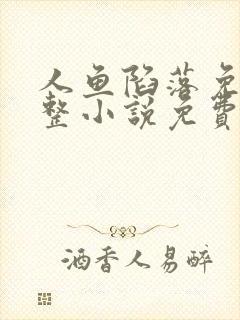 人鱼陷落免
整小說免費
酒香人易醉